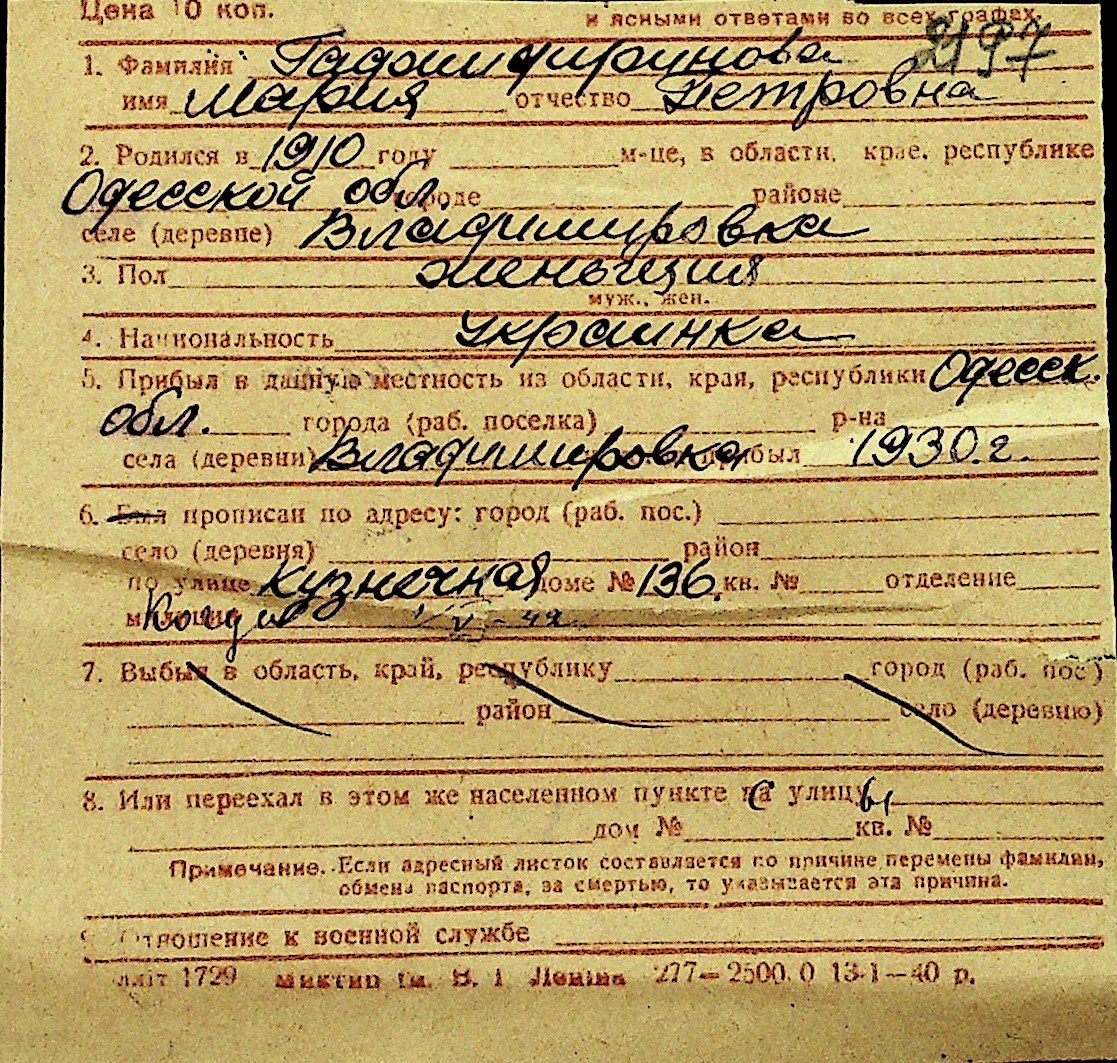 Цена 10 коп.
и ясными ответами во всех графах.
2197
1. Фамилия
имя Мария отчество Петровна
2. Родился в 1910 году м-це, в области, крае, республике
Одесской обл. городе районе
селе (деревне) Владимировка
3. Пол
муж., жен.
4. Национальность украинка
5. Прибыл в данную местность из области, края, республики Одесск.
обл. города (раб. поселка) р-на
села (деревни) Владимировка прибыл 1930 г.
6. Был прописан по адресу: город (раб. пос.)
село (деревня) район
по улице Кузнечная доме № 136. кв. № отделение
милиции
7. Выбыл в область, край, республику город (раб. пос.)
район село (деревню)
8. Или переехал в этом же населенном пункте с улицы
дом № кв. №
Примечание. Если адресный листок составляется по причине перемены фамилии,
обмена паспорта, за смертью, то указывается эта причина.
9. Отношение к военной службе
ляіт 1729 Ленина 277—2500.0 13-1—40 р.